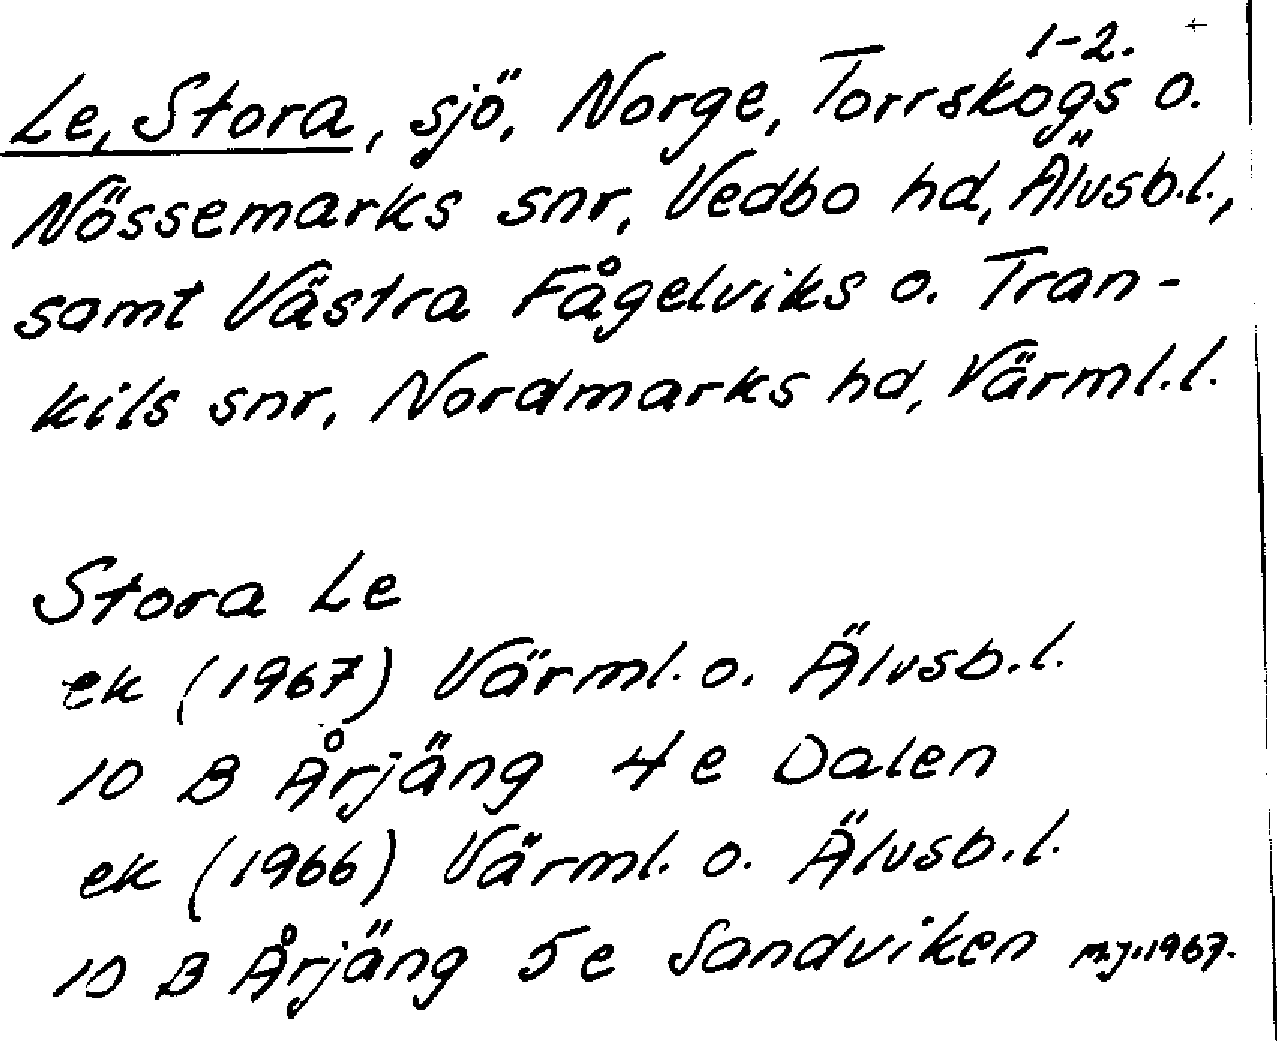 1-2.
Le, Stora, sjö, Norge, Torrskogs o.
Nössemarks snr, Vedbo hd, Älvsb.l.,
samt Västra Fågelviks o. Tran-
kils snr, Nordmarks hd, Värml.l.
Stora Le
ek (1967) Värml. o. Älvsb.l.
10 B Årjäng 4e Dalen
ek (1966) Värml. o. Älvsb.l.
10 B Årjäng 5e Sandviken m.j.1967.